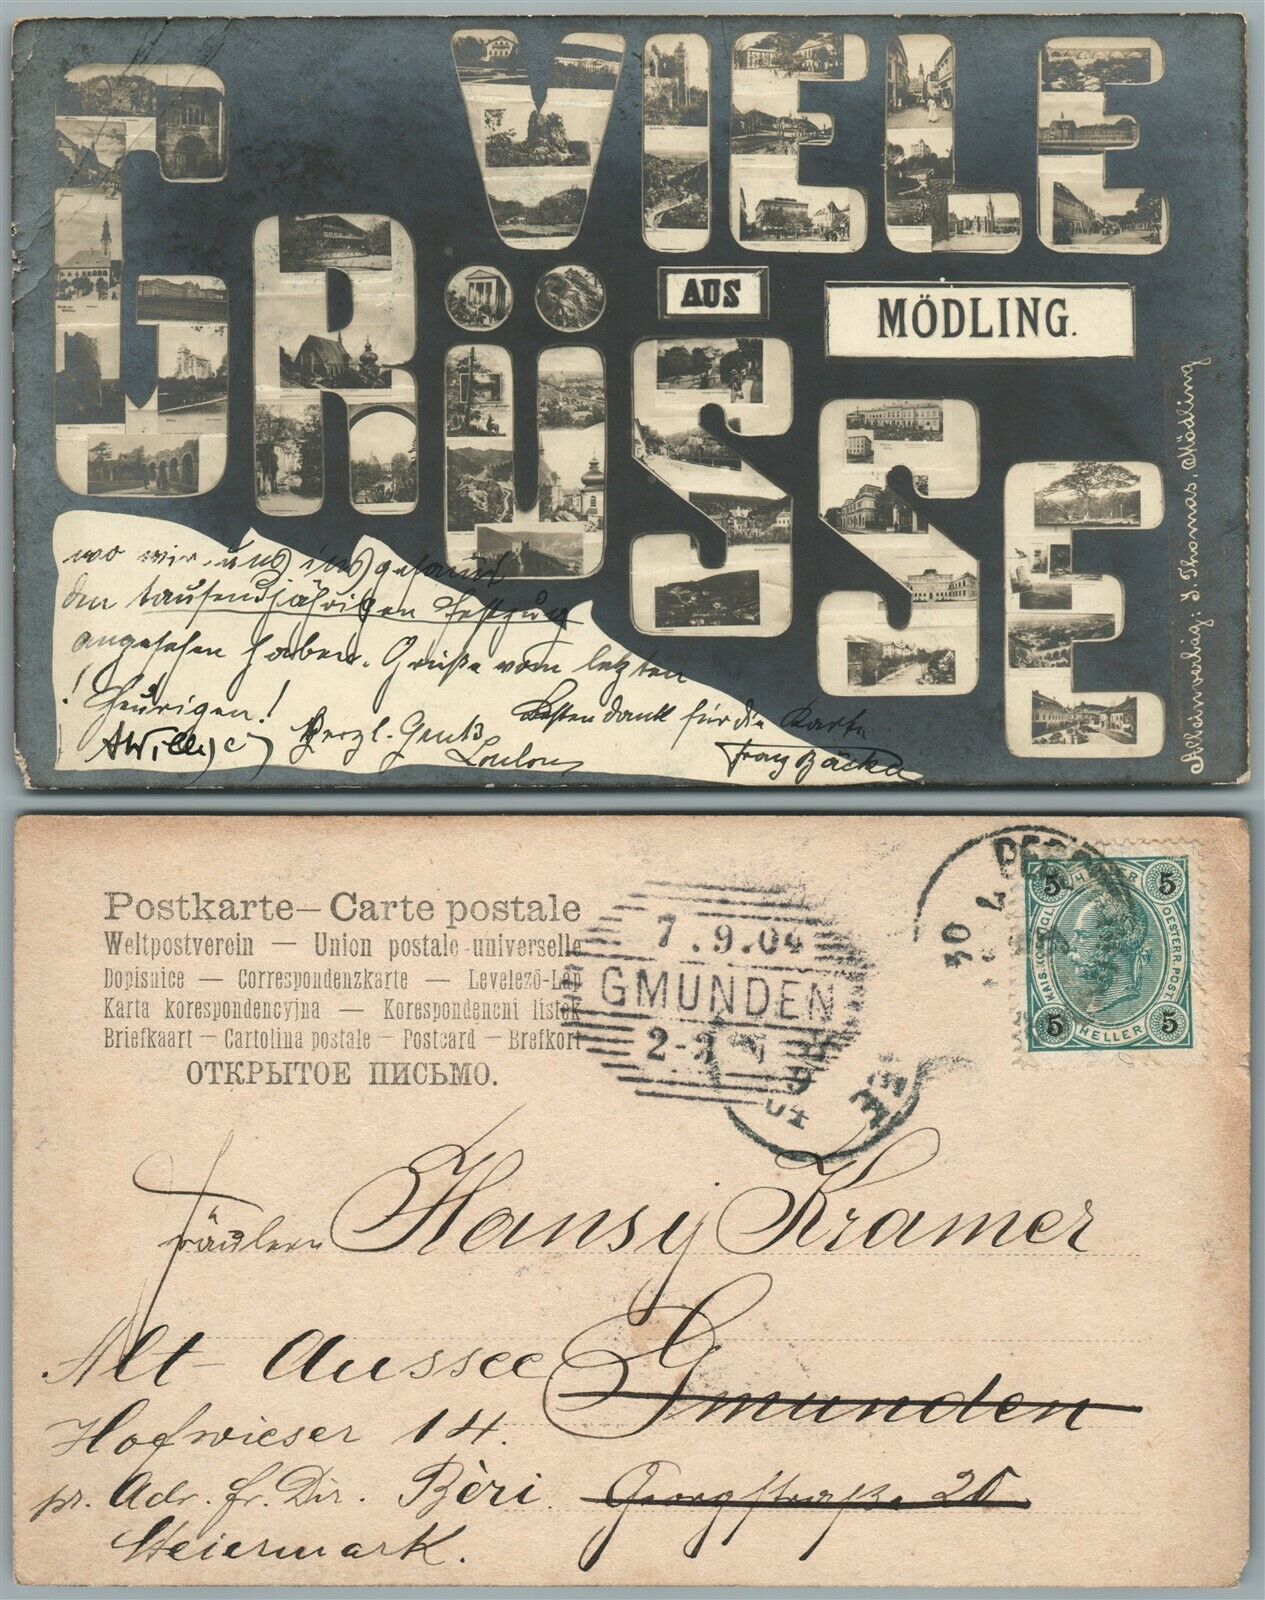 VIELE
GRÜSSE
AUS
MÖDLING.
Alleinverlag: J. Thomas, Mödling
wo wir uns insgesamt
den tausendjährigen Festzug
angesehen haben. Grüße vom letzten
! Heurigen!
Herzl. Gruß
Besten dank für die Karte
Loulou
Franz
Postkarte — Carte postale
Weltpostverein — Union postale universelle
Dopisnice — Correspondenzkarte — Levelező-Lap
Karta korespondencyjna — Korespondencni listek
Briefkaart — Cartolina postale — Postcard — Brefkort
ОТКРЫТОЕ ПИСЬМО.
7.9.04
GMUNDEN
KAIS. KÖNIGL. OESTERR. POST.
5 5
5 HELLER 5
Fräulein Hansy Kramer
Alt-Aussee Gmunden
Hofwieser 14.
pr. Adr. fr. Dir. Bèri Georgstraße 25
Steiermark.